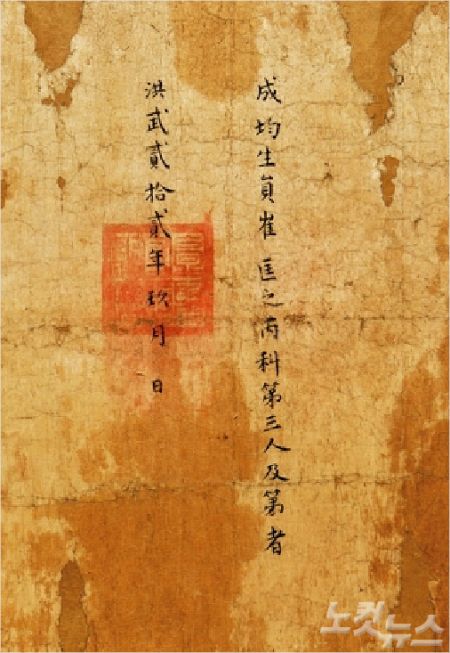 成均生員崔匡之丙科第三人及第者
洪武貳拾貳年玖月 日
노컷뉴스